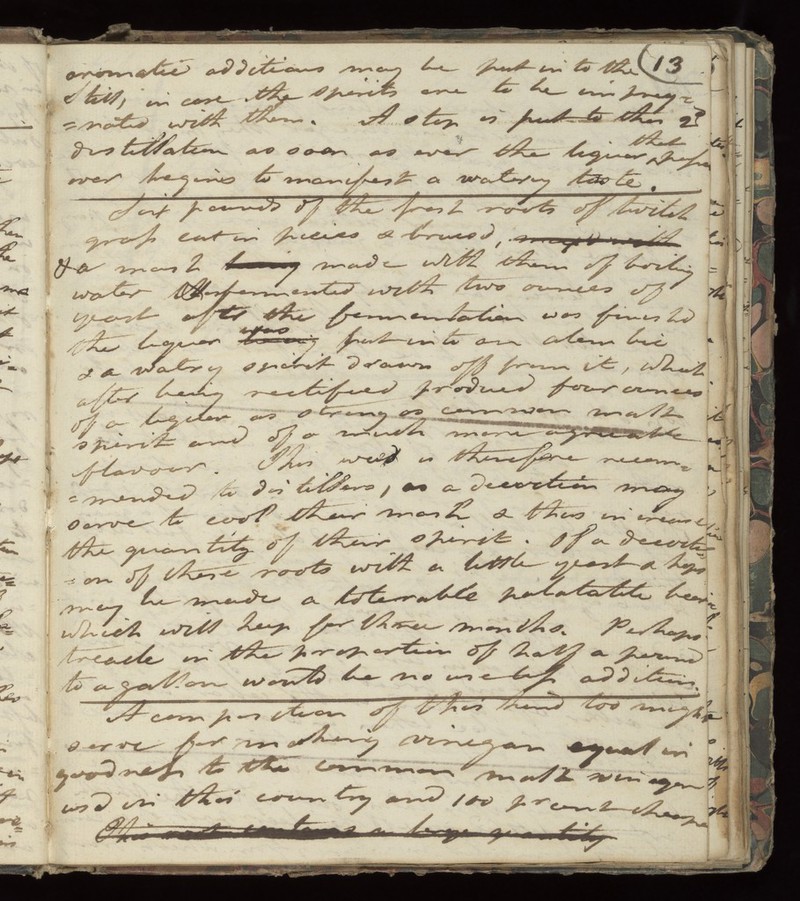 13
aromatic additions may be put in to the
Still, in case the spirits are to be impreg=
=nated with them. A stop is put to this 2d
distillation as soon as ever the liquor that passes
over begins to manifest a watery taste.
Six pounds of the fresh roots of twitch
grass cut in pieces & bruisd,
& a mash being made with them of boiling
water fermented with two ounces of
yeast after the fermentation was finishd
the liquor was being put into an alembic
& a watry spirit drawn off from it, which
after being rectified produced four ounces
of a liquor as strong as common malt
spirit and of a much more agreeable
flavour. This weed is therefore recom=
=mended to distillers, as a decoction may
serve to cool their mash & thus increase
the quantity of their spirit. Of a decocti=
=on of these roots with a little yeast & hops
may be made a tolerrable palatatble beer
which will keep for three months. Perhaps
treacle in the proportion of half a pound
to a gallon would be no useless addition.
A composition of this kind too might
serve for making vinegar equal in
goodness to the common malt vinegar
usd in this country and 100 pr cent cheaper
This root contains a large quantity